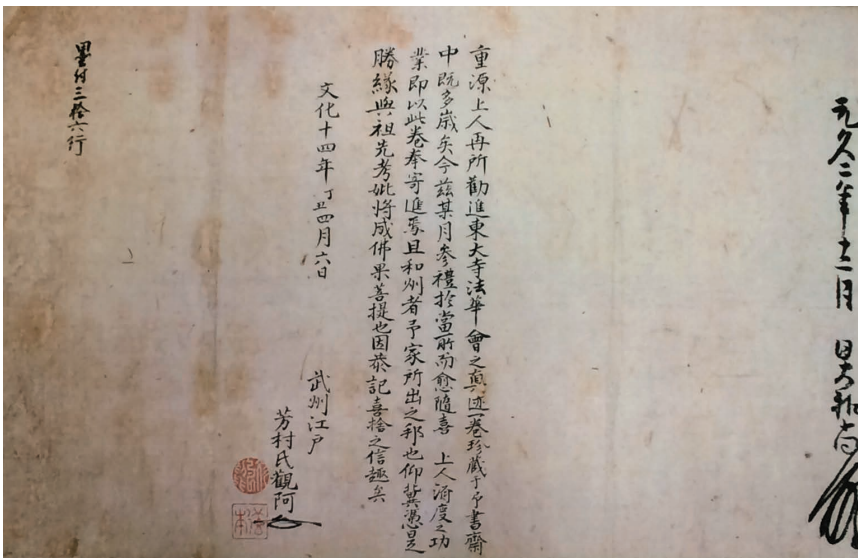 元久二年十二月 日大和尚
重源上人再所勸進東大寺法華會之真迹一卷珍藏于予書齋
中既多歲矣今茲某月參禮於當所而愈隨喜 上人濟度之功
業即以此卷奉寄進焉且和州者予家所出之邦也仰冀憑是
勝緣與祖先考妣將成佛果菩提也因恭記喜捨之信趣矣
文化十四年丁丑四月六日
武州江戸
芳村氏觀阿
墨付三拾六行